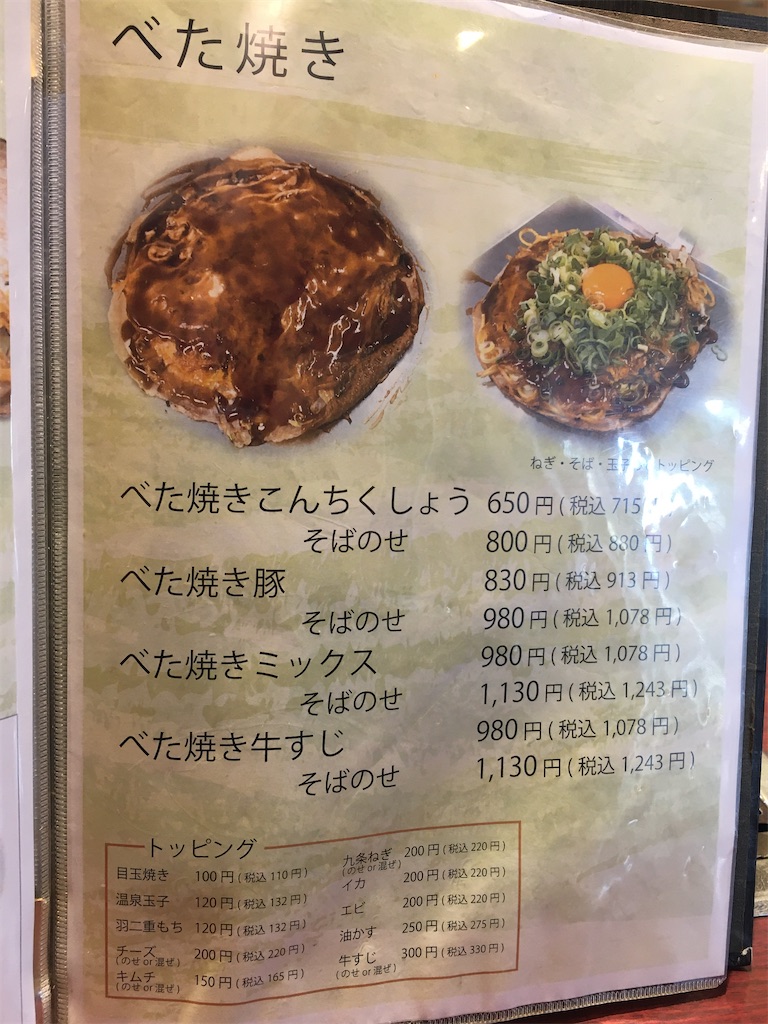 べた焼き
ねぎ・そば・玉子 トッピング
べた焼きこんちくしょう 650円(税込 715
そばのせ 800円(税込 880円)
べた焼き豚 830円(税込 913円)
そばのせ 980円(税込 1,078円)
べた焼きミックス 980円(税込 1,078円)
そばのせ 1,130円(税込 1,243円)
べた焼き牛すじ 980円(税込 1,078円)
そばのせ 1,130円(税込 1,243円)
トッピング
目玉焼き 100円(税込 110円)
温泉玉子 120円(税込 132円)
羽二重もち 120円(税込 132円)
チーズ 200円(税込 220円)
(のせ or 混ぜ)
キムチ 150円(税込 165円)
(のせ or 混ぜ)
九条ねぎ 200円(税込 220円)
(のせ or 混ぜ)
イカ 200円(税込 220円)
エビ 200円(税込 220円)
油かす 250円(税込 275円)
牛すじ 300円(税込 330円)
(のせ or 混ぜ)